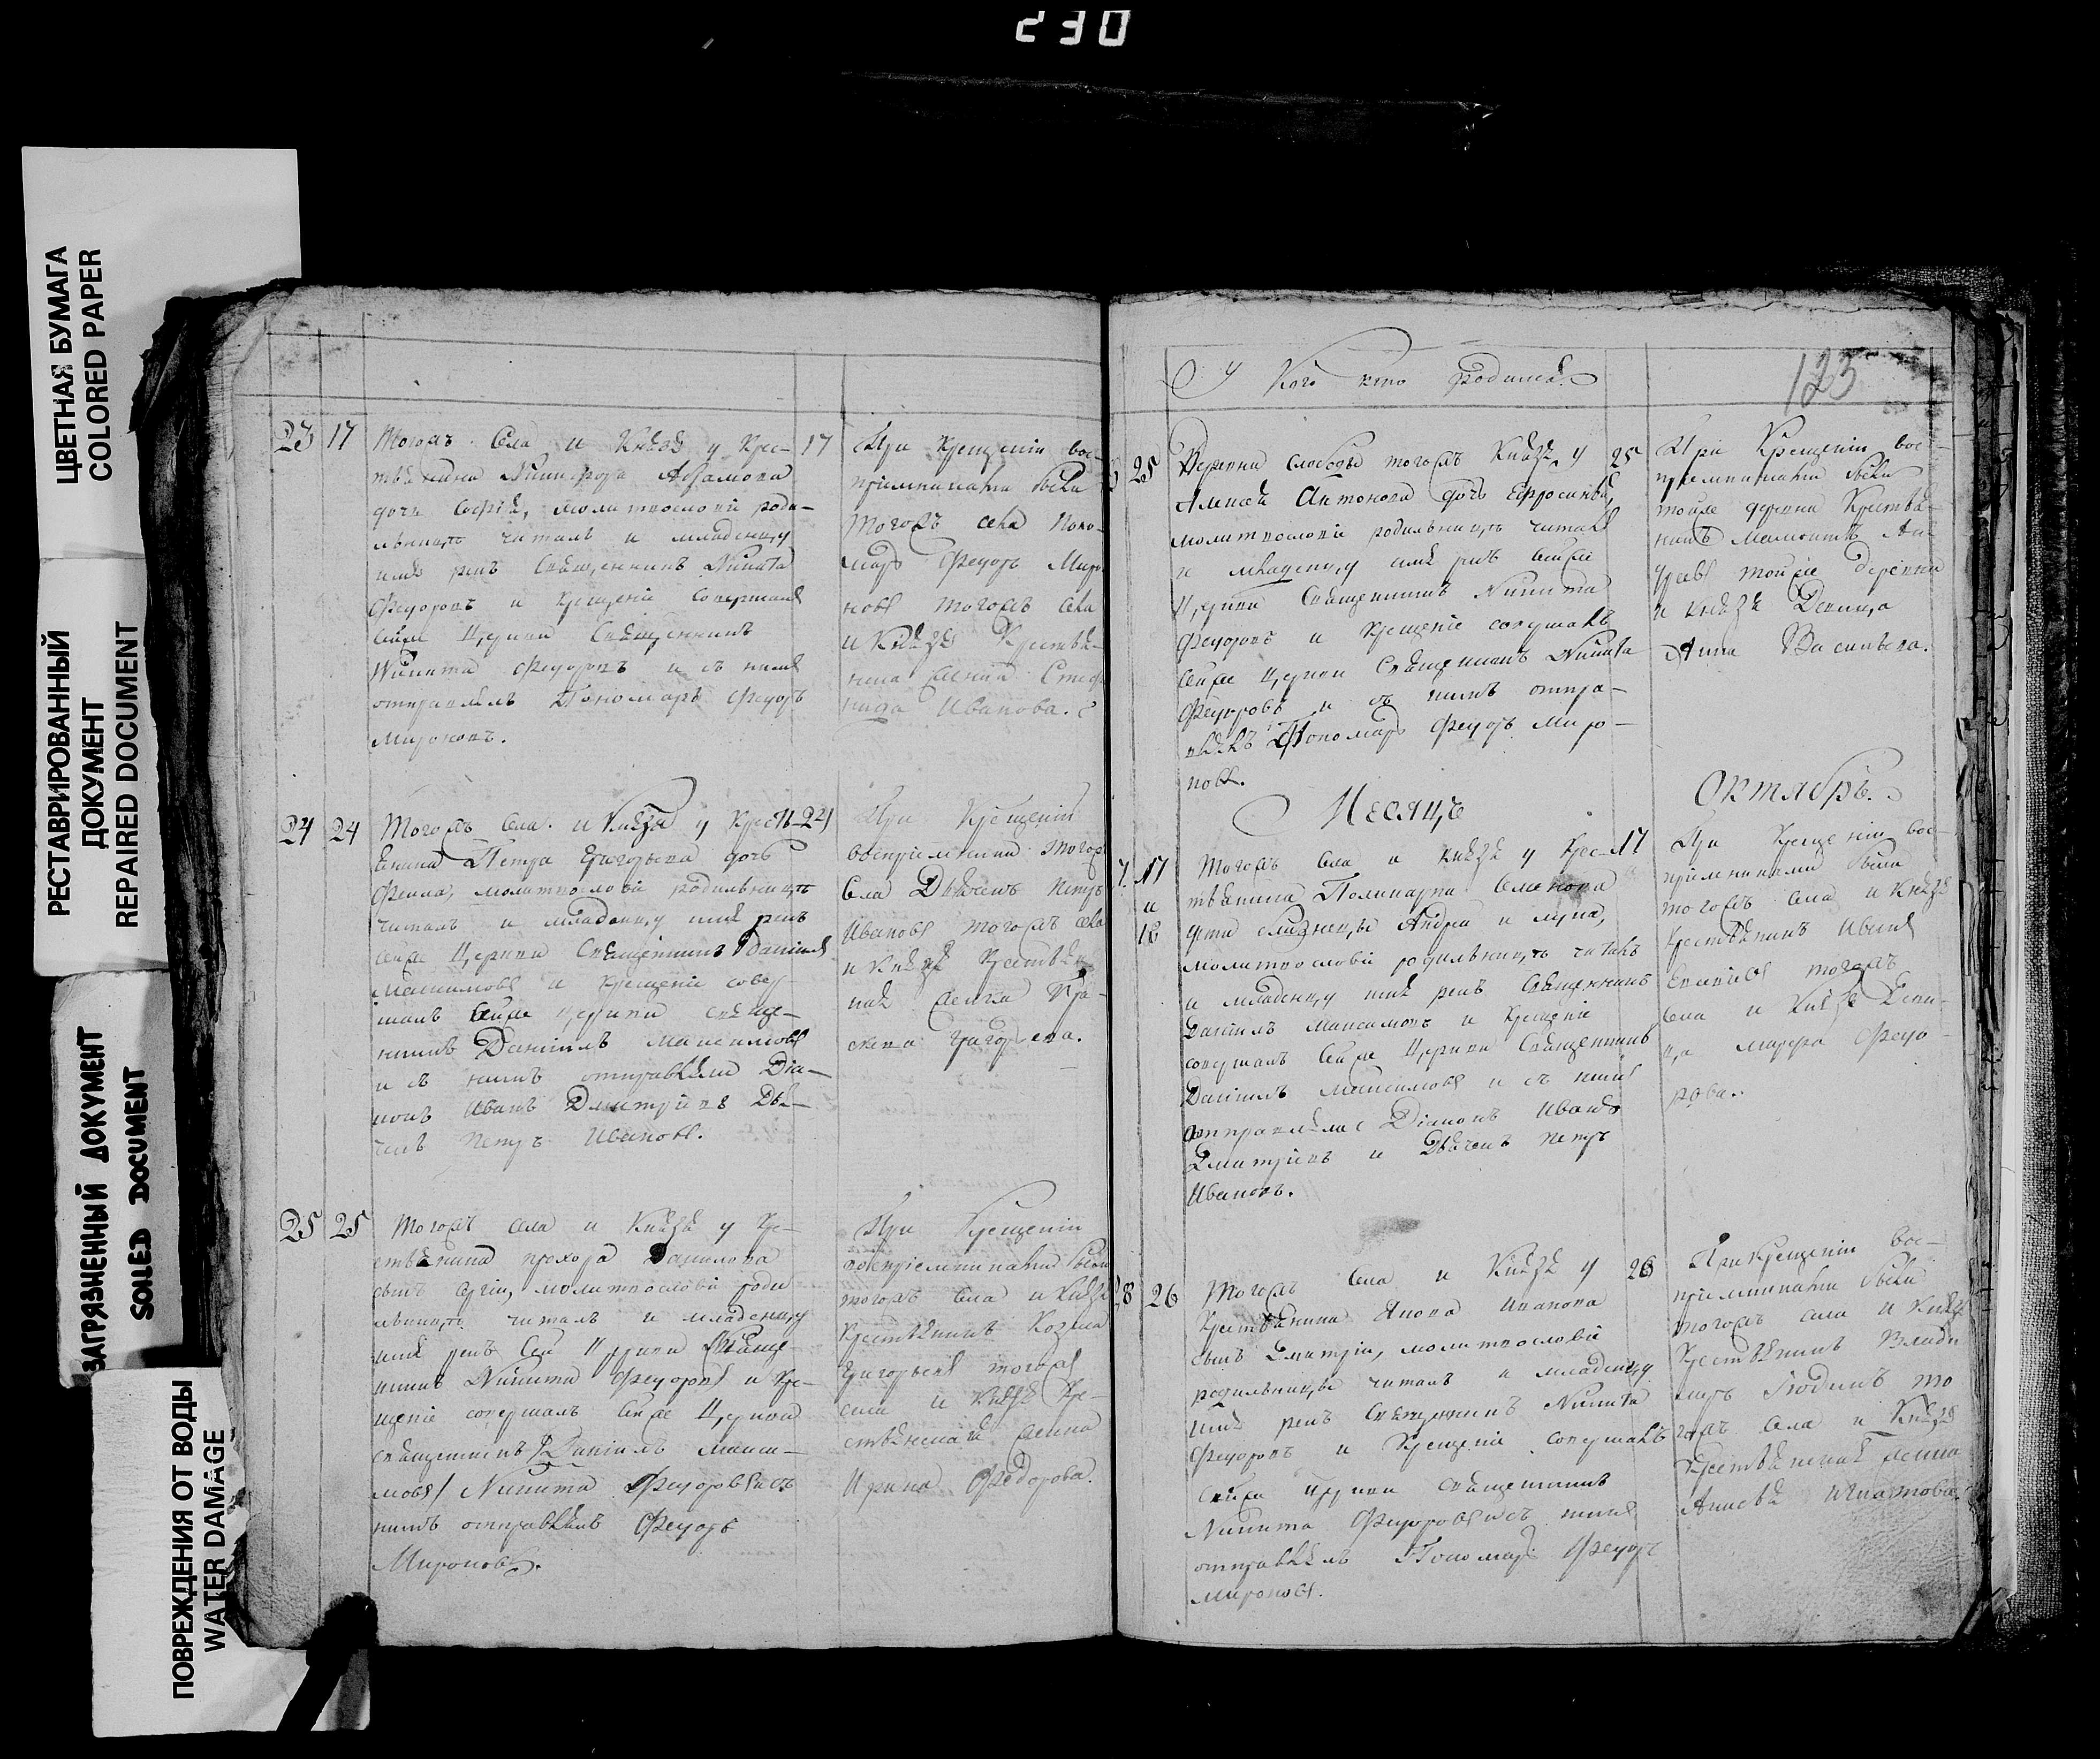 230
ЦВЕТНАЯ БУМАГА
COLORED PAPER
РЕСТАВРИРОВАННЫЙ
ДОКУМЕНТ
REPAIRED DOCUMENT
ЗАГРЯЗНЕННЫЙ ДОКУМЕНТ
SOILED DOCUMENT
ПОВРЕЖДЕНИЯ ОТ ВОДЫ
WATER DAMAGE
23 17 Тогожъ села и Князя у крес-
тьянина Никифора Абрамова
дочь Софія, молитвословіе роди-
льницѣ читалъ и младенцу
имя рекъ Священникъ Никита
Феодоровъ и крещеніе совершалъ
сейже Церкви Священникъ
Никита Феодоровъ и съ нимъ
отправлялъ Пономарь Феодоръ
Мироновъ.
17 При крещеніи вос-
пріемниками были
тогожъ села Поно-
марь Феодоръ Миро-
новъ тогожъ села
и Князя крестья-
нина
Иванова.
24 24 Тогожъ села и Князя у крестья-
енина Петра Григорьева дочь
Фекла, молитвословіе родильницѣ
читалъ и младенцу имя рекъ
сейже Церкви Священникъ Даніилъ
Максимовъ и крещеніе совер-
шалъ сейже церкви священ-
никъ Даніилъ Максимовъ
и съ нимъ отправляли Діа-
конъ Иванъ Дмитріевъ Дья-
чекъ Петръ Ивановъ.
24 При Крещеніи
воспріемники тогожъ
села Дьячекъ Петръ
Ивановъ тогожъ села
и Князя крестьян
Григорьева.
25 25 Тогожъ села и Князя у кре-
стьянина Прохора Данилова
сынъ Сергій, молитвословіе роди
льницѣ читалъ и младенцу
имя рекъ сей Церкви Священ-
никъ Никита Феодоровъ и кре-
щеніе совершалъ сейже Церкви
священникъ Даніилъ Макси-
мовъ/ Никита Феодоровъ и съ
нимъ отправлялъ Феодоръ
Мироновъ.
При Крещеніи
воспріемниками были
тогожъ села и Князя
крестьянинъ Козма
Григорьевъ тогожъ
села и Князя кре-
стьянская женка
Ирина Федорова.
У кого кто родился.
123
25 Деревни слободы тогожъ Князя у
Алексѣя Антонова дочь Ефросинья,
молитвословіе родильницѣ читалъ
и младенцу имя рекъ сейже
Церкви Священникъ Никита
Феодоровъ и крещеніе совершалъ
сейже Церкви Священникъ Никита
Феодоровъ и съ нимъ отпра-
влялъ Пономарь Феодоръ Миро-
новъ.
25 При Крещеніи вос-
пріемниками были
тойже деревни Крестья-
нинъ Мамонтъ Ан
дреевъ тойже деревни
и Князя Девица
Анна Васильева.
Месяцъ Октябрь.
17 и 18 Тогожъ села и Князя у крес-
тьянина Поликарпа Семенова
дети близнецы Андрей и Лука,
молитвословіе родильницѣ читалъ
и младенцу имя рекъ Священникъ
Даніилъ Максимовъ и Крещеніе
совершалъ сейже Церкви Священникъ
Даніилъ Максимовъ и съ нимъ
отправляли Діаконъ Иванъ
Дмитріевъ и Дьячекъ Петръ
Ивановъ.
17 При крещеніи вос-
пріемниками были
тогожъ села и Князя
крестьянинъ
тогожъ
села и Князя Деви-
ца Марфа Федо-
рова.
28 26 Тогожъ села и Князя у
крестьянина Якова Иванова
сынъ Дмитрій, молитвословіе
родильницы читалъ и младенцу
имя рекъ Священникъ Никита
Феодоровъ и Крещеніе совершалъ
сейже Церкви священникъ
Никита Феодоровъ и съ нимъ
отправлялъ Пономарь Феодоръ
Мироновъ.
26 При крещеніи вос-
пріемниками были
тогожъ села и Князя
крестьянинъ Влади
миръ то
гожъ села и Князя
крестьянская женка
Игнатова.